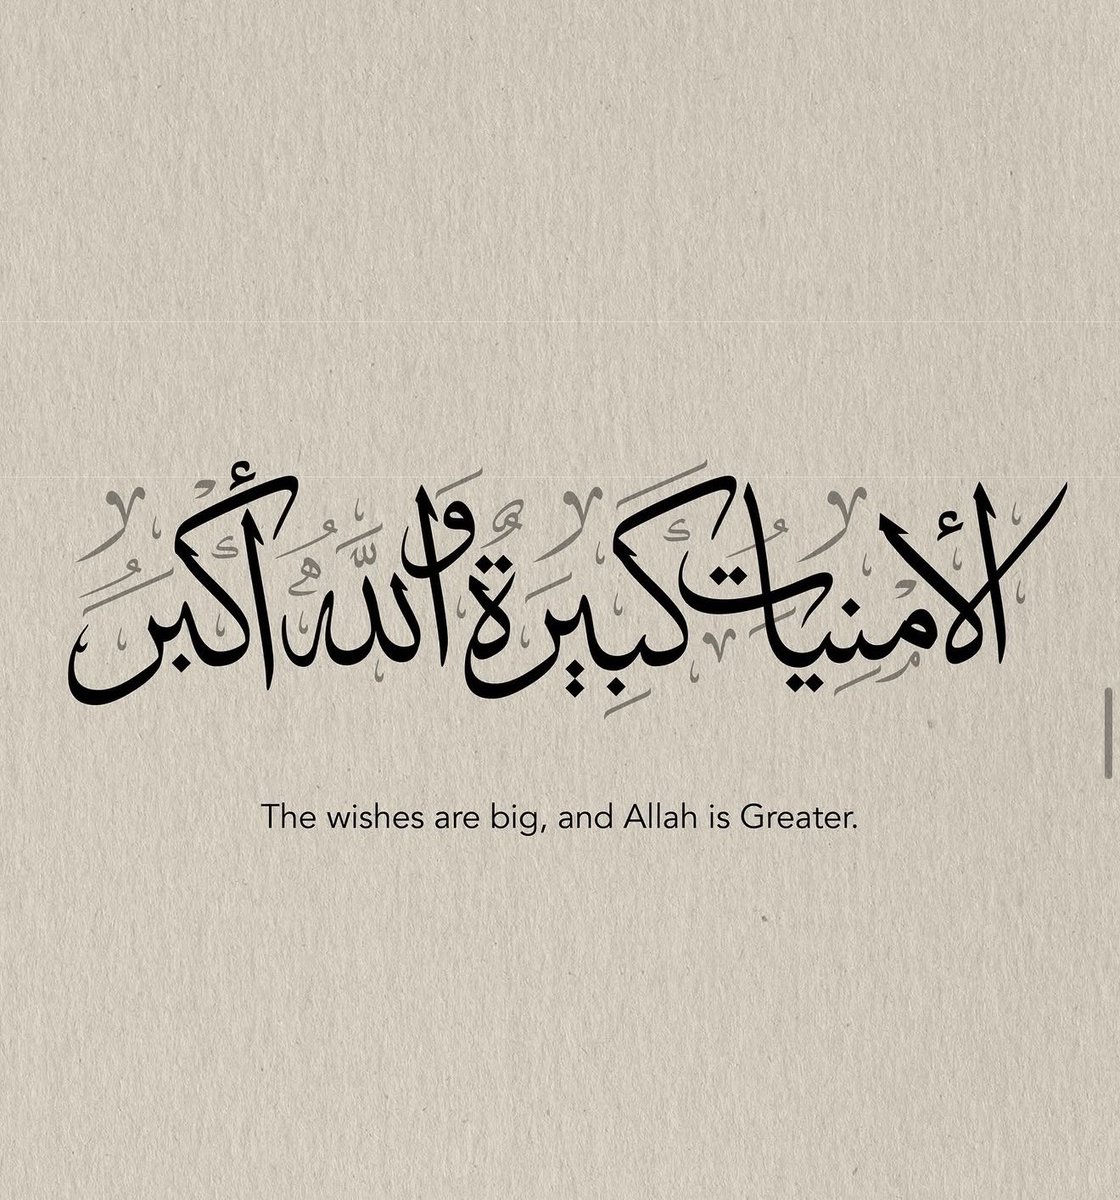 الأمنيات كبيرة والله أكبر
The wishes are big, and Allah is Greater.